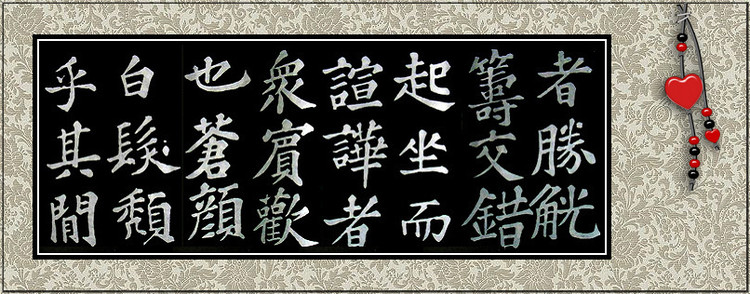 者勝觥
籌交錯
起坐而
諠譁者
衆賓歡
也蒼顏
白髮頹
乎其閒